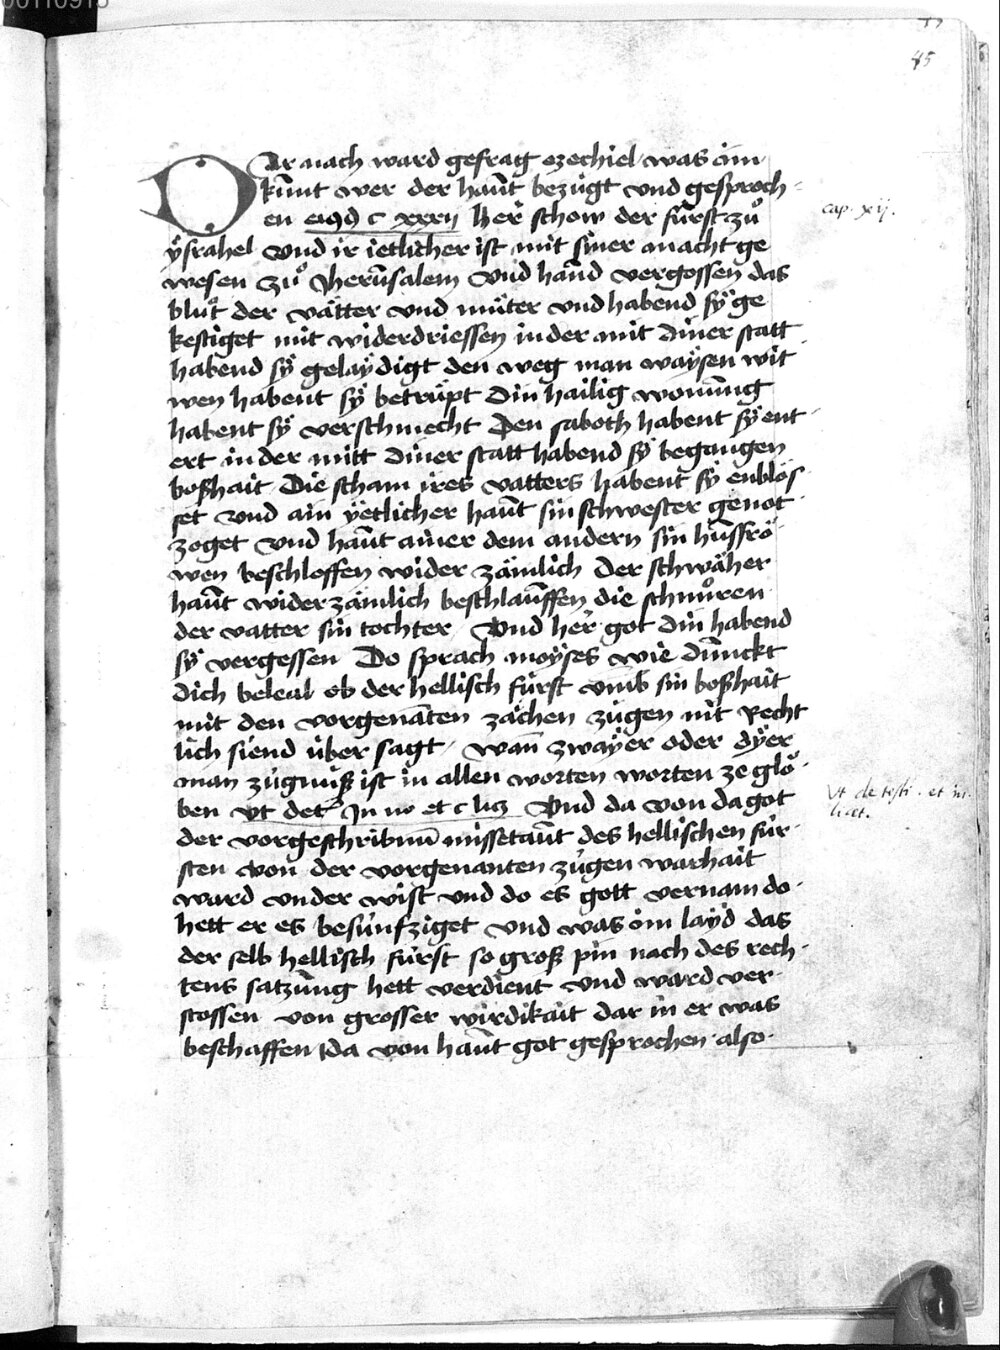 00110915
45
DAr nach ward gefragt ezechiel was im
kunt wer der haut bezügt und gesproch
en eiq9 c xxxii her schow der fürst zů
cap. xij.
ÿsrahel und ir ietlicher ist mit siner macht ge
wesen zů Jherusalem Und hand vergossen das
blůt der vätter und můter und habend sÿ ge
kestiget mit widerdriessen in der mit diner statt
habend sÿ gelaÿdigt den weg man waÿsen wit
wen habent sÿ betrüpt Din hailig wonung
habent sÿ verschmecht Den saboth habent sÿ ent
ert in der mitt diner statt habend sÿ begangen
boßhait Die scham ires vatters habent sÿ enblös
set und ain ÿetlicher haut sin schwester genot
zoget Und haut ainer dem andern sin husfro
wen beschloffen wider zämlich Der schwäher
haut wider zämlich beschlauffen die schnůren
der vatter sin tochter Und her got din habend
sÿ vergessen Do sprach moÿses wie dunckt
dich beleal ob der hellisch fürst umb sin boßhait
mit den vorgenaten zächen zügen nit Recht
lich siend über sagt wan zwaÿer oder dÿer
man zügnuß ist in allen worten worten ze glo
ben vt det In no et c licz Und da von da got
Vt de testi. et in
licet.
der vorgeschribnn missetaut des hellischen für
sten von der vorgenanten zügen warhait
ward under wist und do es gott vernam do
hett er es besünfziget und was im laÿd das
der selb hellisch fürst so groß pin nach des rech
tens satzung hett verdient und ward ver
stossen von grosser wirdikait dar in er was
beschaffen da von haut got gesprochen also